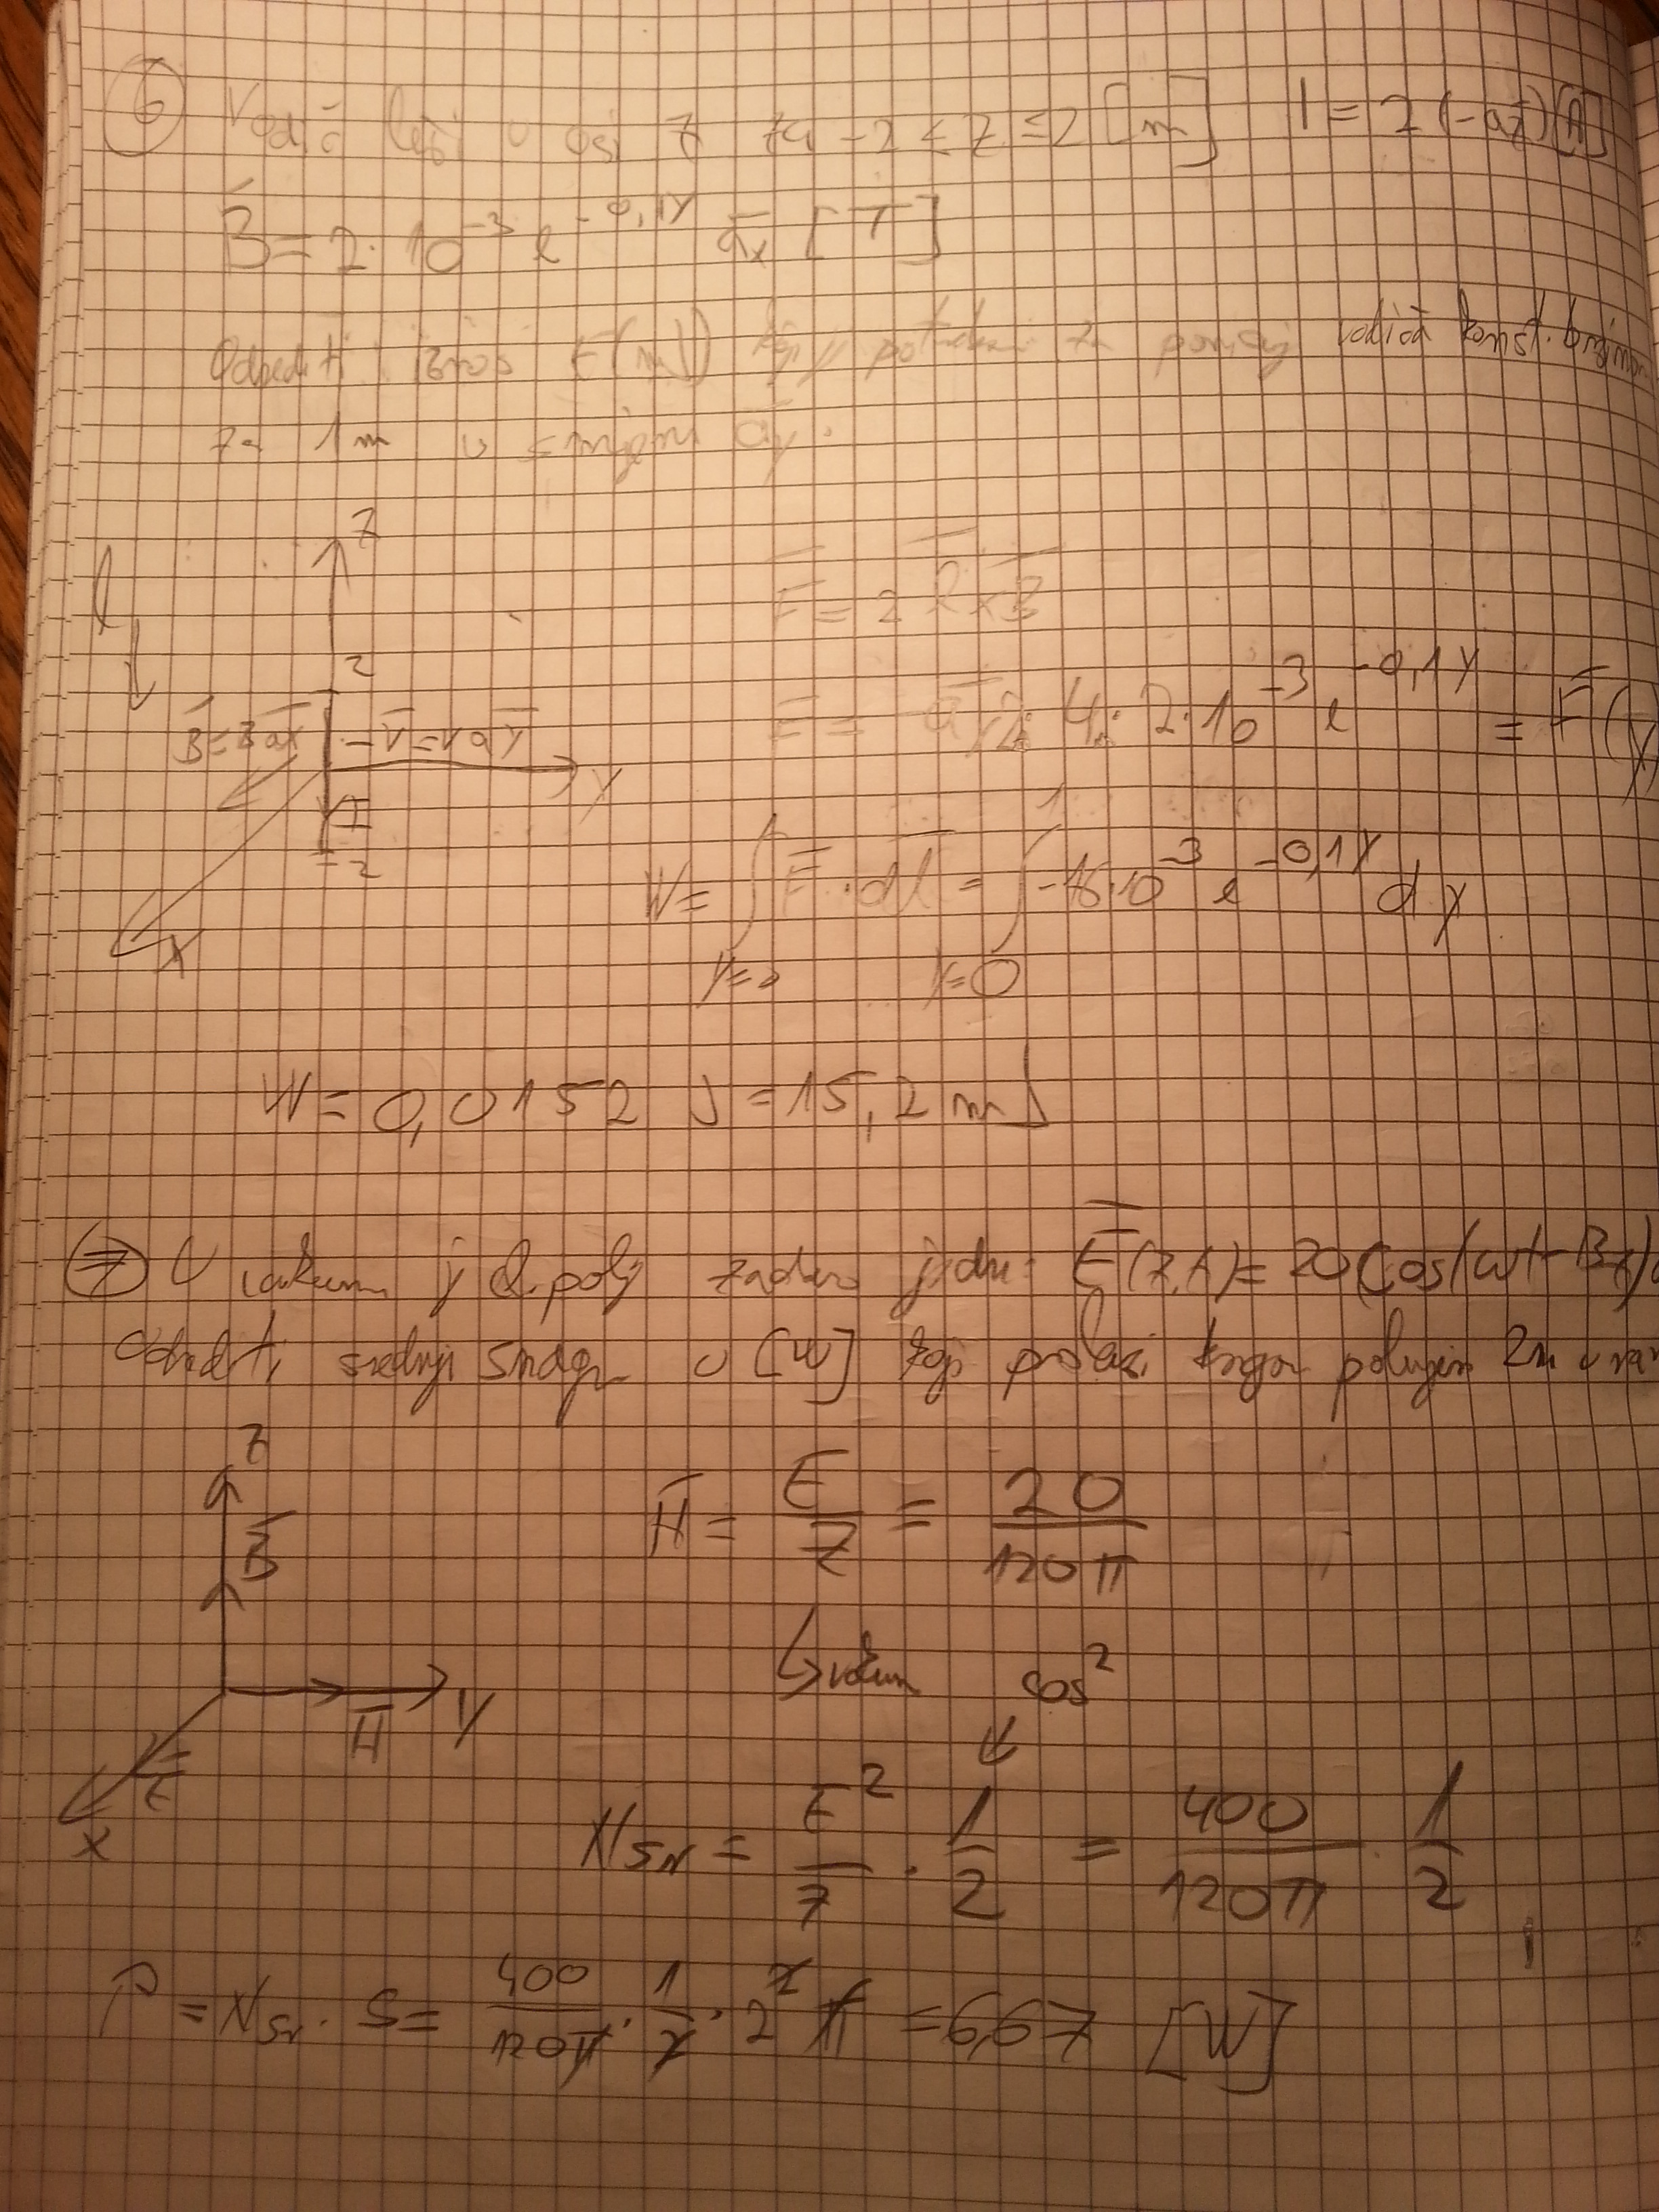 6 Vodič leži u osi z za -2 ≤ z ≤ 2 [m] I = 2(-az) [A]
B = 2·10^-3 e^-0,1y ax [T]
Odrediti iznos E(mJ) koji je potreban za pomicanj vodiča konst. brzinom
za 1m u smjeru ay.
z
l
2
B = B ax
v = v ay
y
I
-2
x
F = I l × B
F = -ay 2·4·2·10^-3 e^-0,1y = F(y)
W = ∫ F·dl = ∫ -16·10^-3 e^-0,1y dy
1
y=0 y=0
W = 0,0152 J = 15,2 mJ
7 U vakuum je el. polj zadano jedn: E(z,t) = 20 cos(ωt - Bz)
Odrediti srednju snagu u [W] koj prolazi krugom polumjera 2m u
z
B
H
y
E
x
H = E/Z = 20/120π
↳ vakum
cos^2
Nsr = E^2/Z · 1/2 = 400/120π · 1/2
P = Nsr · S = 400/120π · 1/2 · 2^2 π = 6,67 [W]